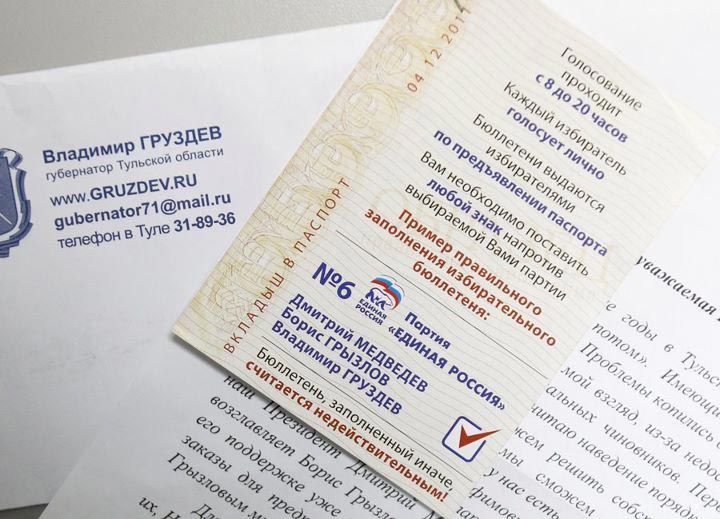 Владимир ГРУЗДЕВ
губернатор Тульской области
www.GRUZDEV.RU
gubernator71@mail.ru
телефон в Туле 31-89-36
ВКЛАДЫШ В ПАСПОРТ
04.12.2011
Голосование
проходит
с 8 до 20 часов
Каждый избиратель
голосует лично
Бюллетени выдаются
избирателями
по предъявлении паспорта
Вам необходимо поставить
любой знак напротив
выбираемой Вами партии
Пример правильного
заполнения избирательного
бюллетеня:
№6
ЕДИНАЯ
РОССИЯ
Партия
"ЕДИНАЯ РОССИЯ"
Дмитрий МЕДВЕДЕВ
Борис ГРЫЗЛОВ
Владимир ГРУЗДЕВ
Бюллетень, заполненный иначе,
считается недействительным!
уважаемая
годы в Тульс
потом». Имеющи
Проблемы копились
мой взгляд, из-за недо
альных чиновников. Пере
считаю наведение порядк
у нас есть
жем решить собс
мы, сможем
наш Президент Дмитрий М
возглавляет Борис Грызлов
его поддержке уже
заказы для предпр
Грызловым м
их, Н